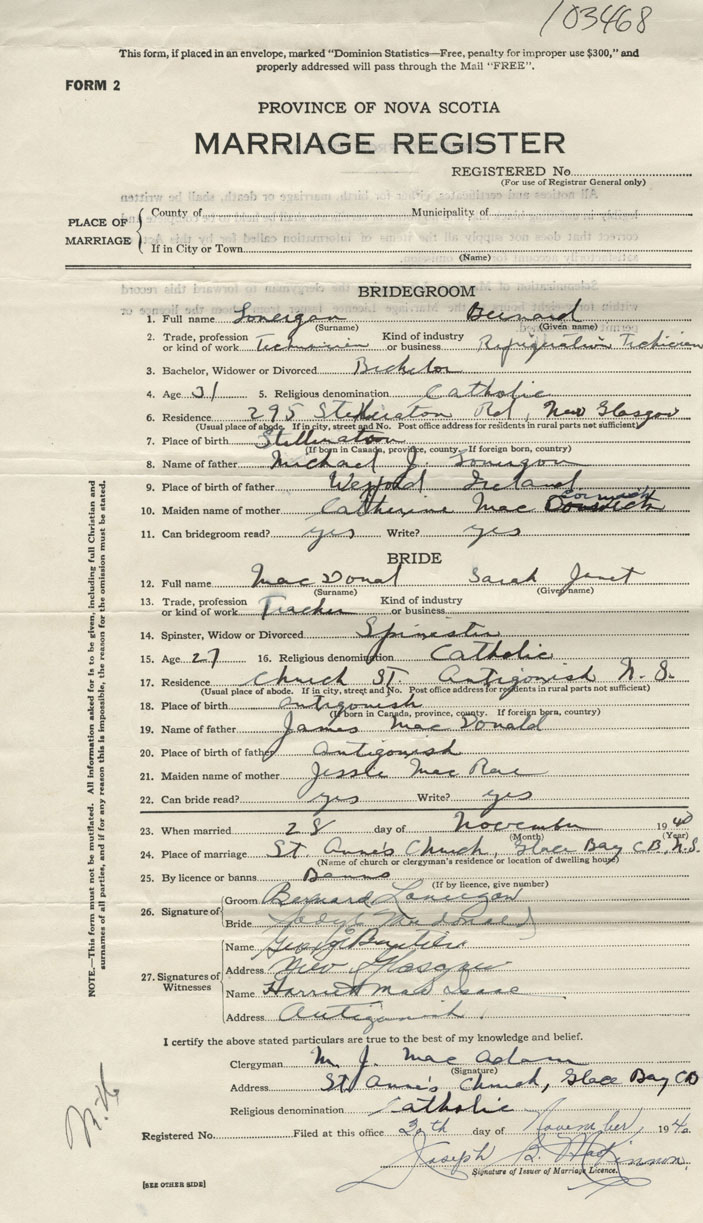 103468
This form, if placed in an envelope, marked "Dominion Statistics—Free, penalty for improper use $300," and
properly addressed will pass through the Mail "FREE".
FORM 2
PROVINCE OF NOVA SCOTIA
MARRIAGE REGISTER
REGISTERED No.
(For use of Registrar General only)
PLACE OF MARRIAGE
County of Municipality of
If in City or Town
(Name)
BRIDEGROOM
1. Full name Lonergan Bernard
(Surname) (Given name)
2. Trade, profession or kind of work Technician Kind of industry or business Refrigeration Technician
3. Bachelor, Widower or Divorced Bachelor
4. Age 31 5. Religious denomination Catholic
6. Residence 295 Rd, New Glasgow
(Usual place of abode. If in city, street and No. Post office address for residents in rural parts not sufficient)
7. Place of birth
(If born in Canada, province, county. If foreign born, country)
8. Name of father Michael J Lonergan
9. Place of birth of father Wexford Ireland
10. Maiden name of mother Catherine Mac Cormick
11. Can bridegroom read? yes Write? yes
BRIDE
12. Full name Mac Donal Sarah Janet
(Surname) (Given name)
13. Trade, profession or kind of work Teacher Kind of industry or business
14. Spinster, Widow or Divorced Spinester
15. Age 27 16. Religious denomination Catholic
17. Residence Church St. Antigonish N.S.
(Usual place of abode. If in city, street and No. Post office address for residents in rural parts not sufficient)
18. Place of birth Antigonish
(If born in Canada, province, county. If foreign born, country)
19. Name of father James Mac Donald
20. Place of birth of father Antigonish
21. Maiden name of mother Jessie Mac Rae
22. Can bride read? yes Write? yes
23. When married 28 day of November 1940
(Month) (Year)
24. Place of marriage St Anne's Church, Glace Bay C.B. N.S.
(Name of church or clergyman's residence or location of dwelling house)
25. By licence or banns Banns
(If by licence, give number)
26. Signature of
Groom Bernard Lonergan
Bride Macdonald
27. Signatures of Witnesses
Name George
Address New Glasgow
Name Harriet Mac Isaac
Address Antigonish
I certify the above stated particulars are true to the best of my knowledge and belief.
Clergyman M. J. Mac Adam
(Signature)
Address St. Anne's Church, Glace Bay CB
Religious denomination Catholic
Registered No. Filed at this office 30th day of November, 1940
Joseph B. MacKinnon
Signature of Issuer of Marriage Licence.
[SEE OTHER SIDE]
NOTE.—This form must not be mutilated. All information asked for is to be given, including full Christian and
surnames of all parties, and if for any reason this is impossible, the reason for the omission must be stated.